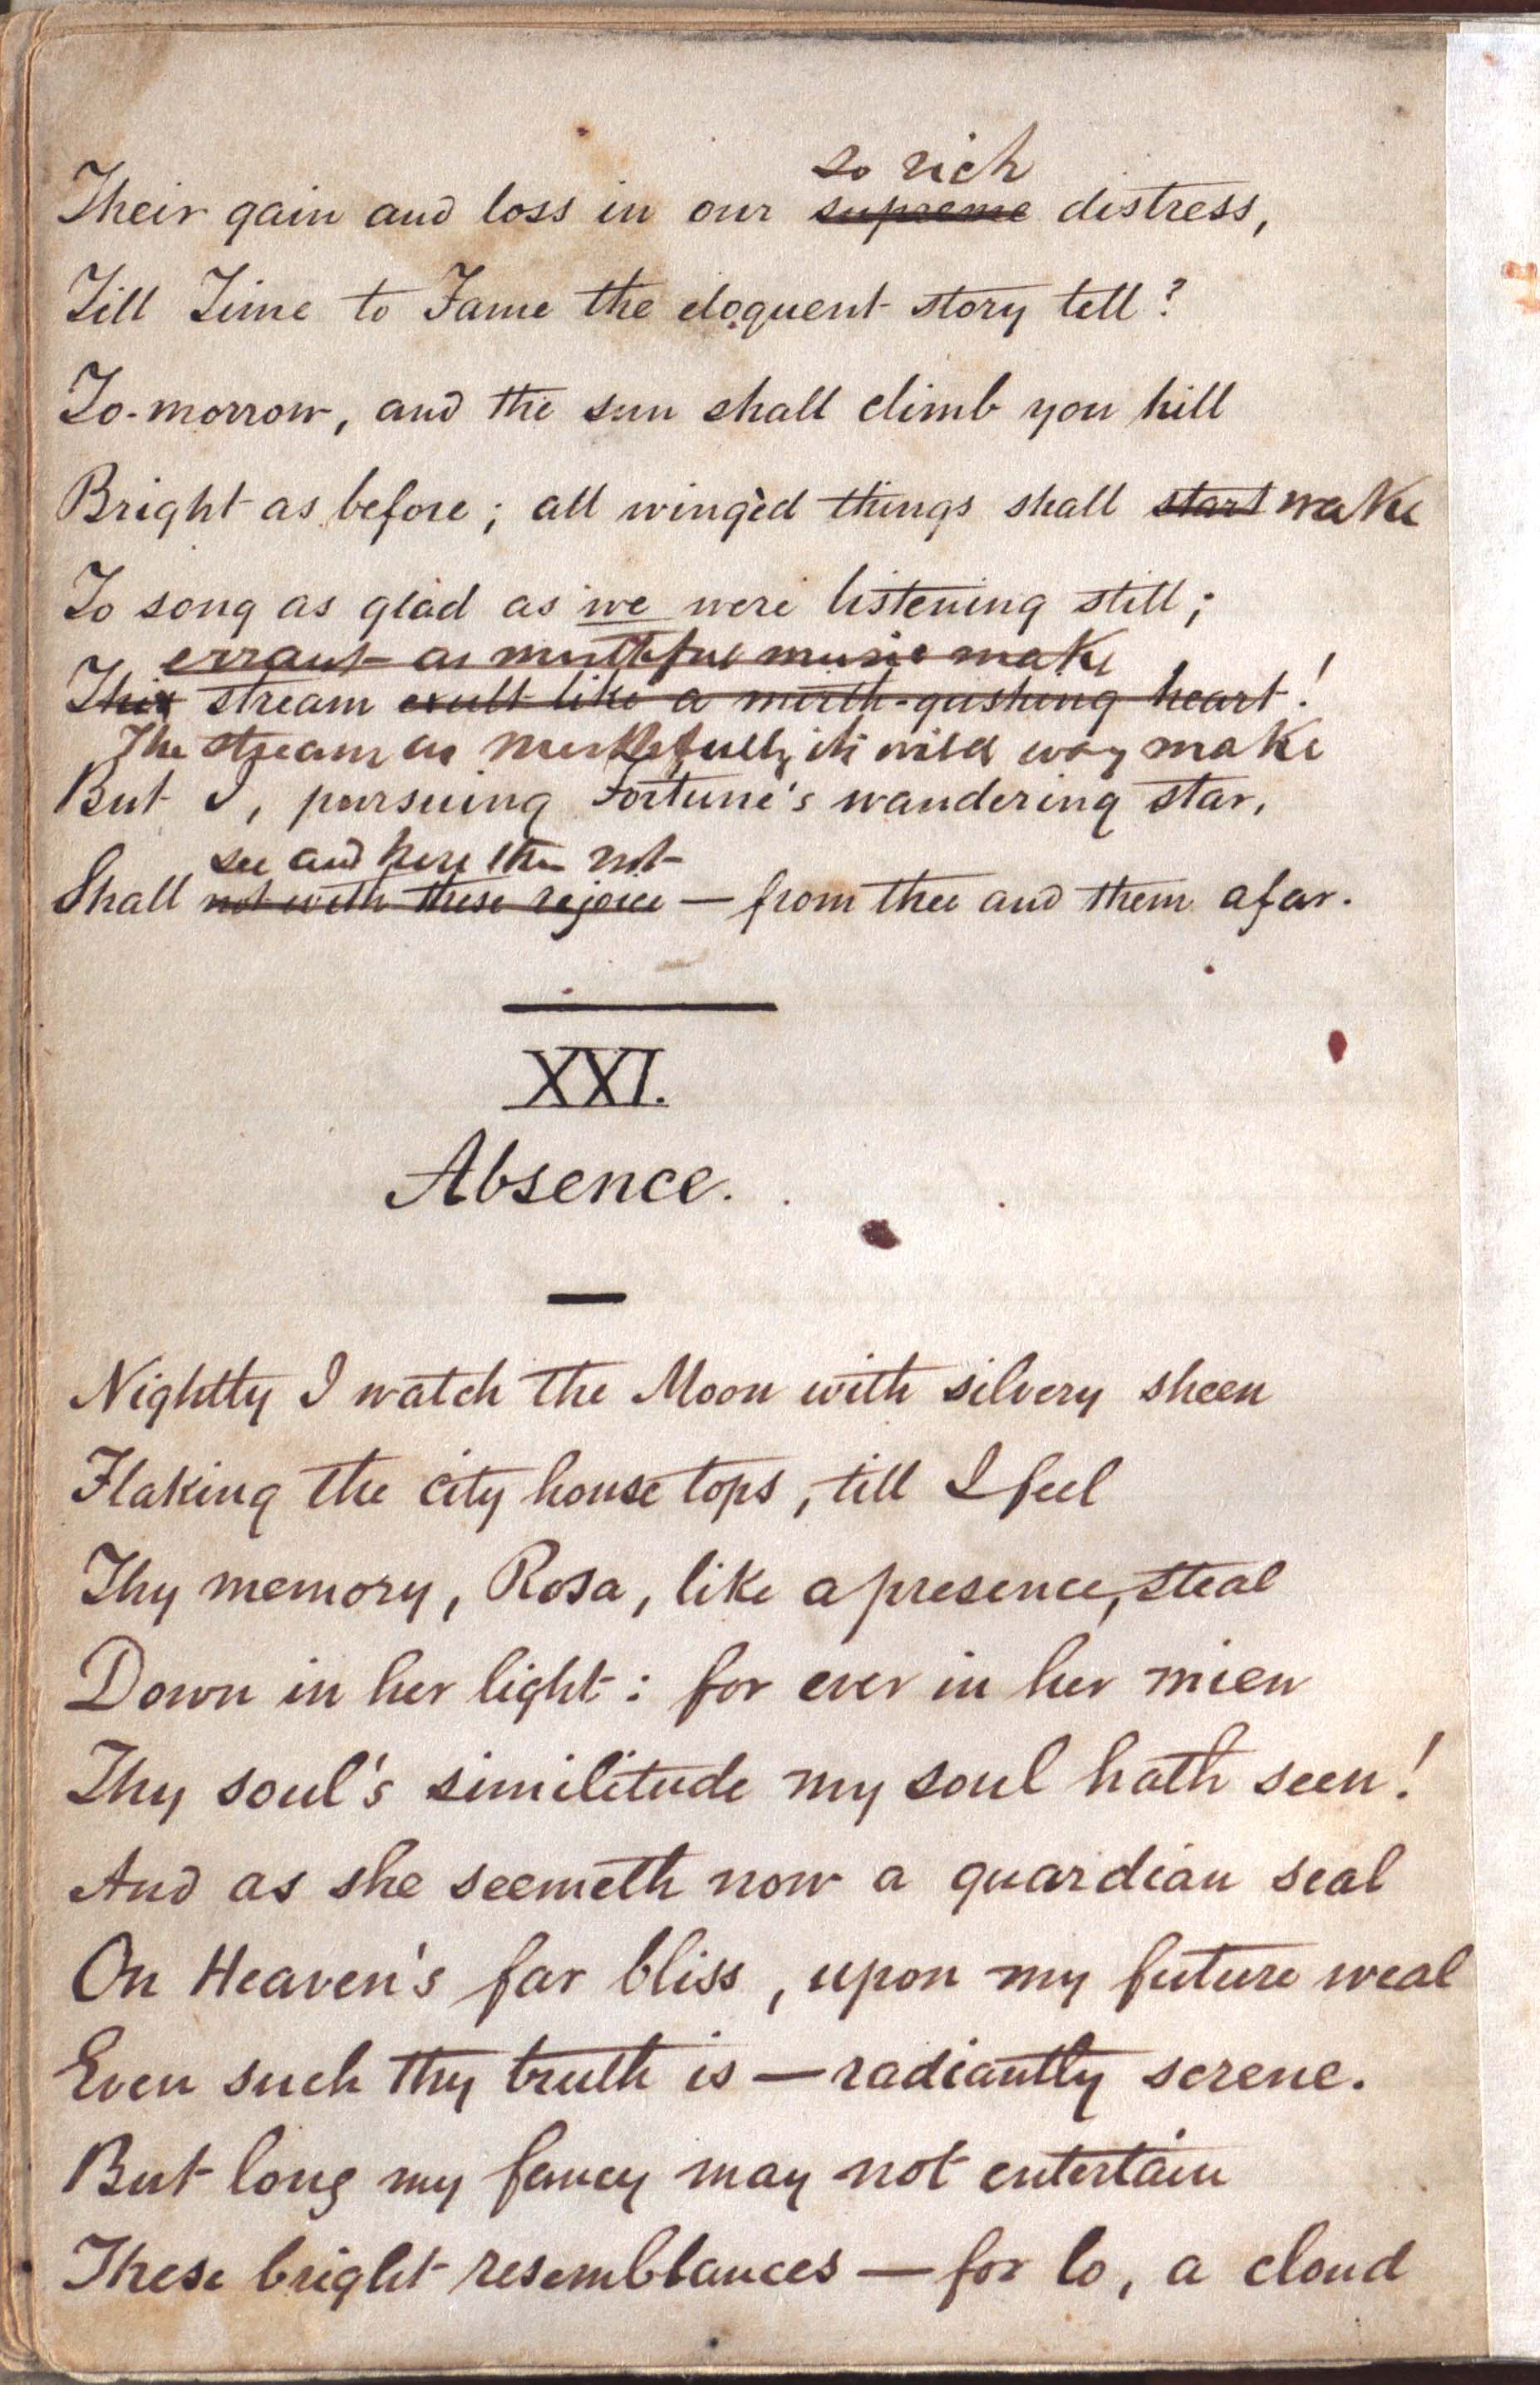 so rich
Their gain and loss in our supreme distress,
Till Time to Fame the eloquent story tell?
To-morrow, and the sun shall climb yon hill
Bright as before; all wingèd things shall start wake
To song as glad as we were listening still;
errant as mirthful music make
This stream exult like a mirth-gushing heart!
The stream as mirthfully its wild way make
But I, pursuing Fortune's wandering star,
see and hear thee not
Shall not with these rejoice — from thee and them afar.
XXI.
Absence.
Nightly I watch the Moon with silvery sheen
Flaking the city house tops, till I feel
Thy memory, Rosa, like a presence, steal
Down in her light: for ever in her mien
Thy soul's similitude my soul hath seen!
And as she seemeth now a guardian seal
On Heaven's far bliss, upon my future weal
Even such thy truth is — radiantly serene.
But long my fancy may not entertain
These bright resemblances — for lo, a cloud